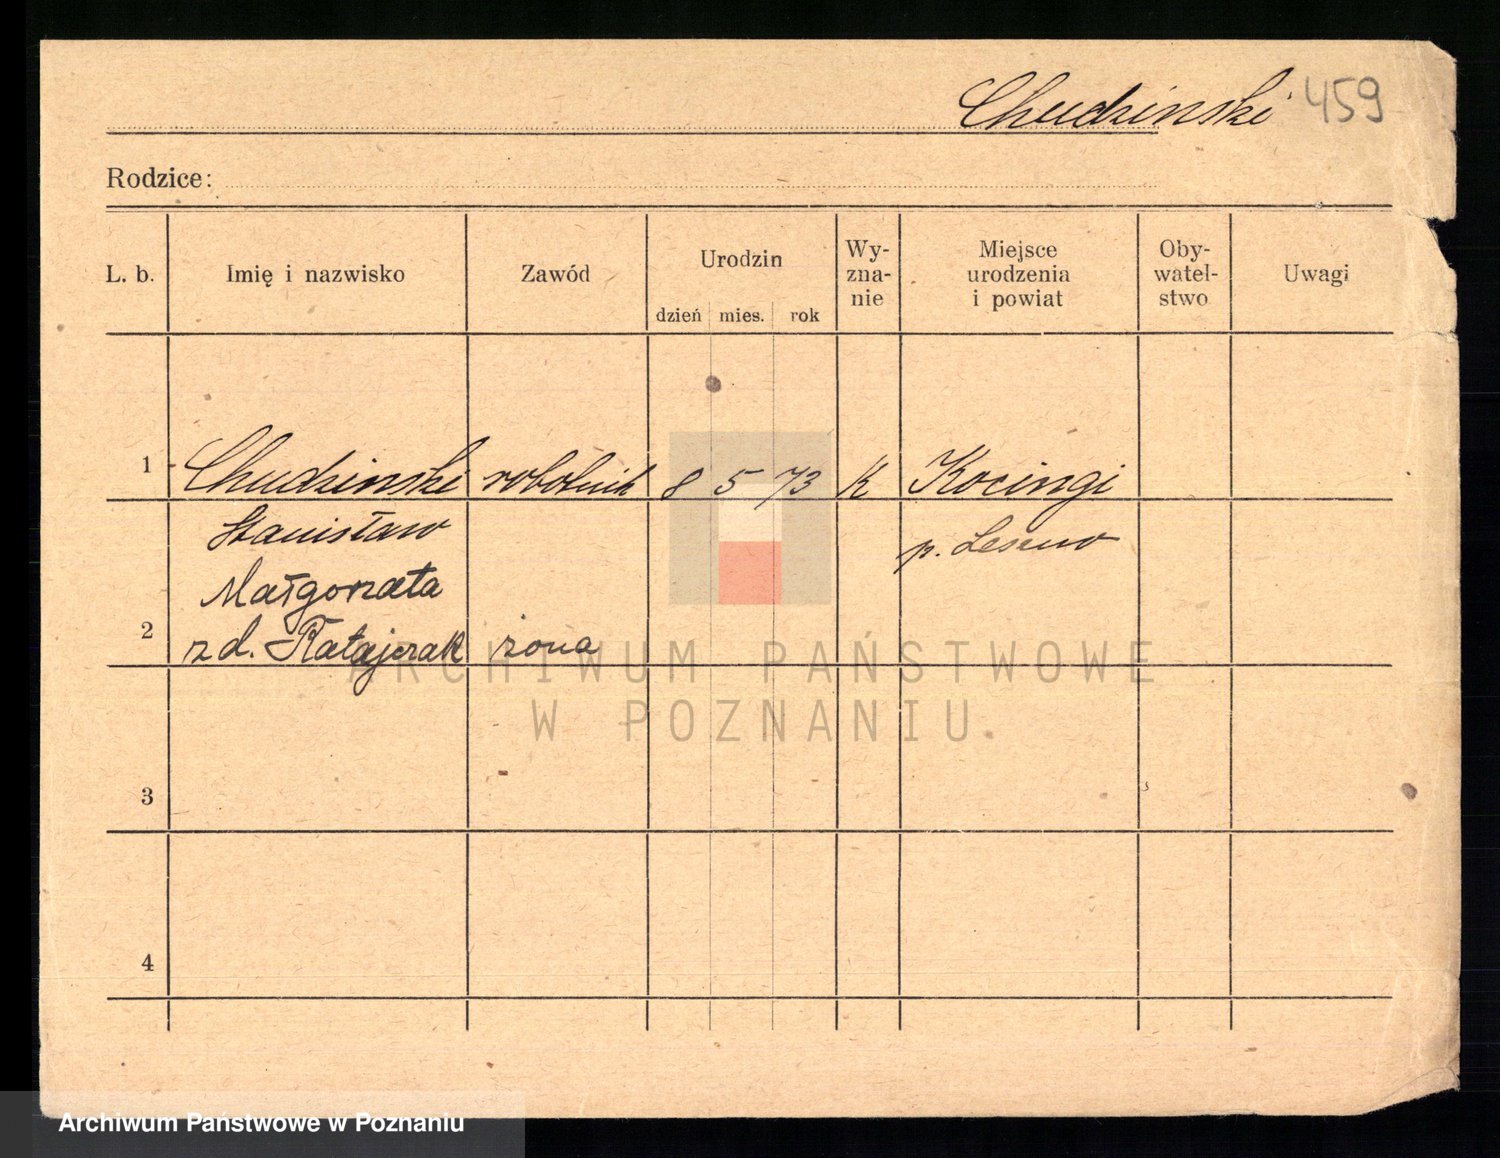 Chudzinski 459
Rodzice:
L. b. Imię i nazwisko Zawód Urodzin dzień mies. rok Wy-
zna-
nie Miejsce
urodzenia
i powiat Oby-
watel-
stwo Uwagi
1 Chudzinski robotnik 8 5 73 K Kocingi
Stanisław p. Leszno
Małgorzata
2 zd. Ratajczak żona
ARCHIWUM PAŃSTWOWE
W POZNANIU
3
4
Archiwum Państwowe w Poznaniu